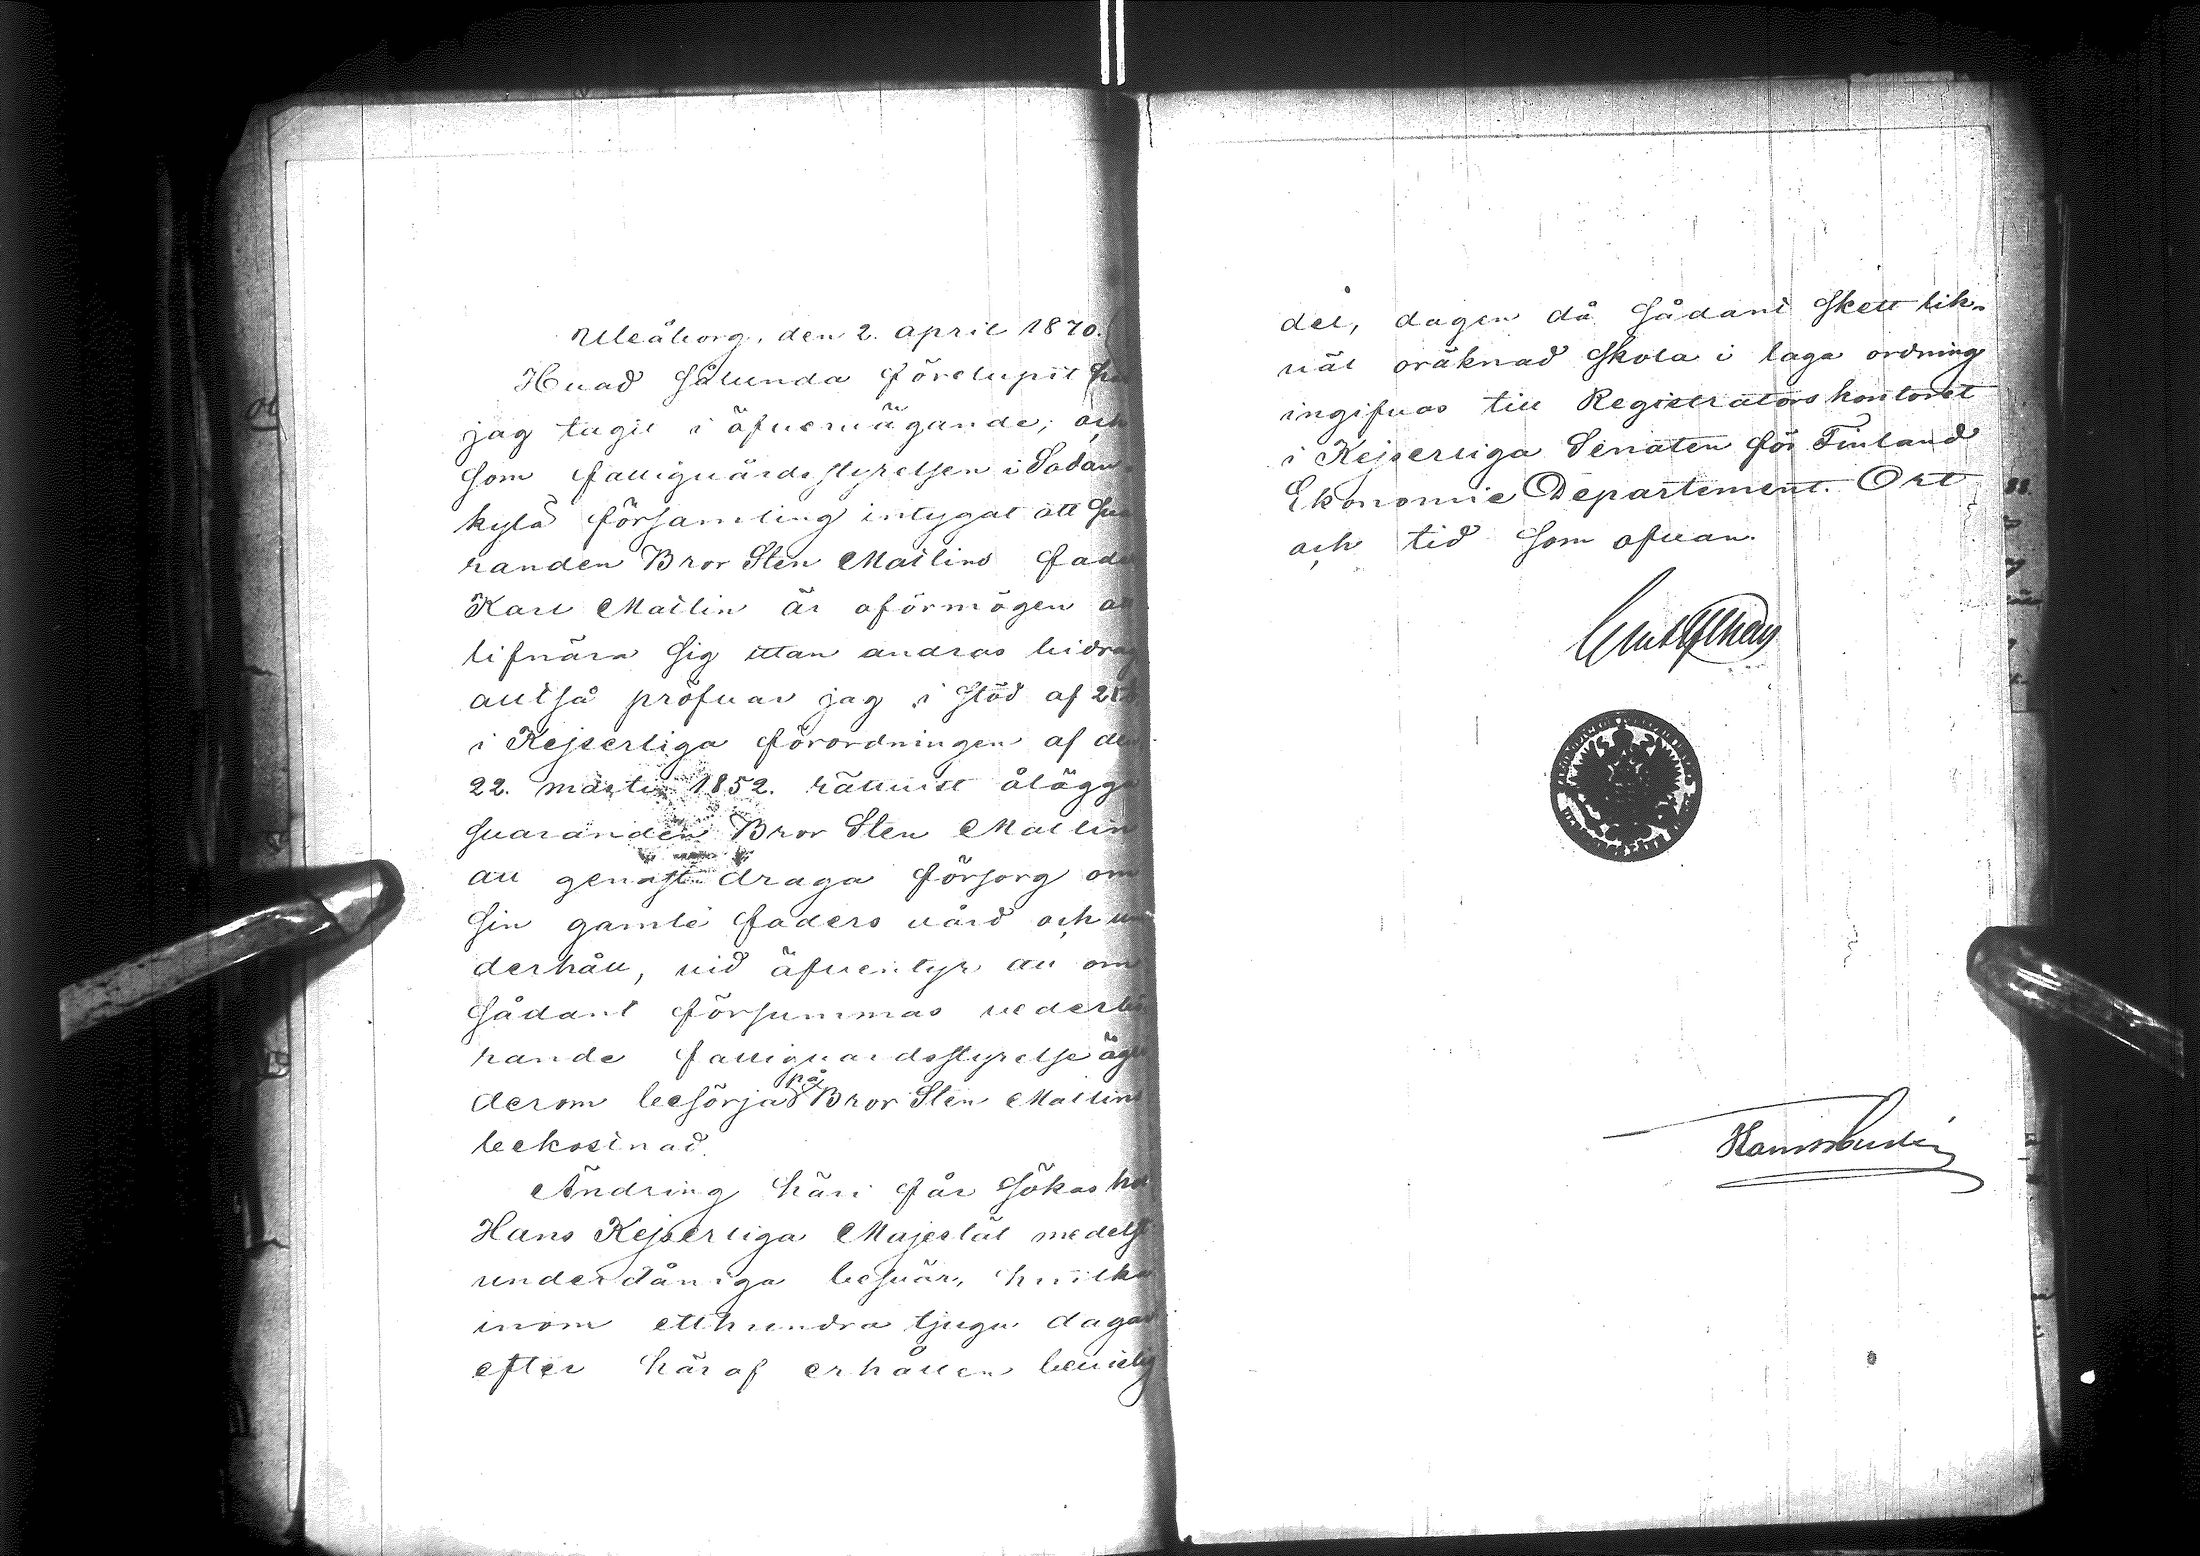 Uleåborg, den 2. april 1870.
Hvad sålunda förelupit har
jag tagit i öfvervägande; och
som fattigvårdsstyrelsen i Sodan-
kylä församling intygat att sva
randen Bror Sten Mallins fader
Karl Mallin är oförmögen att
lifnära sig utan andras bidrag
alltså pröfvar jag i stöd af
i Kejserliga förordningen af den
22. martii 1852. rättvist ålägga
svaranden Bror Sten Mallin
att genast draga försorg om
sin gamle faders vård och un
derhåll, vid äfventyr att om
sådant försummas vederbö
rande fattigvardsstyrelse äger
derom besörja på Bror Sten Mallins
bekostnad.
Ändring häri får sökas hos
Hans Kejserliga Majestät medelst
underdåniga besvär, hvilka
inom etthundra tjugu dagar
efter häraf erhållen bevislig
del, dagen då sådant skett lik-
väl oräknad skola i laga ordning
ingifvas till Registrators kontoret
i Kejserliga Senaten för Finland
Ekonomie Departement. Ort
och tid som ofvan.